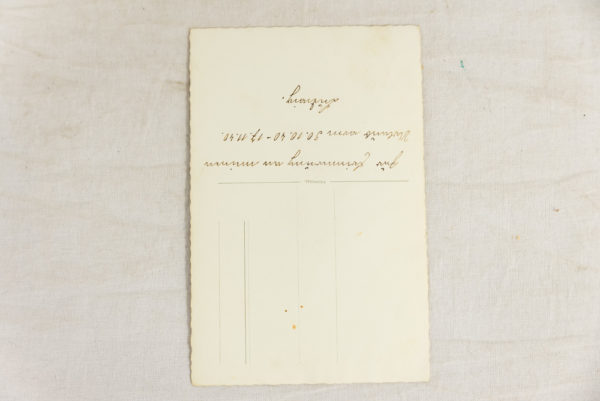 Zur Erinnerung an meinen
Urlaub vom 30.10.40 - 17.11.40.
Ludwig.